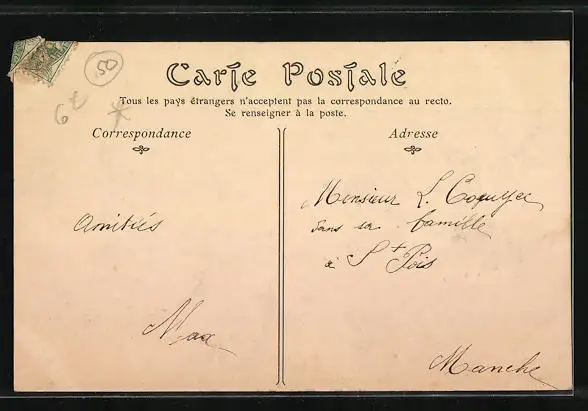 50
6€
Carte Postale
Tous les pays étrangers n'acceptent pas la correspondance au recto.
Se renseigner à la poste.
Correspondance
Adresse
Amitiés
Max
Monsieur L.
dans sa famille
à St Pois
Manche